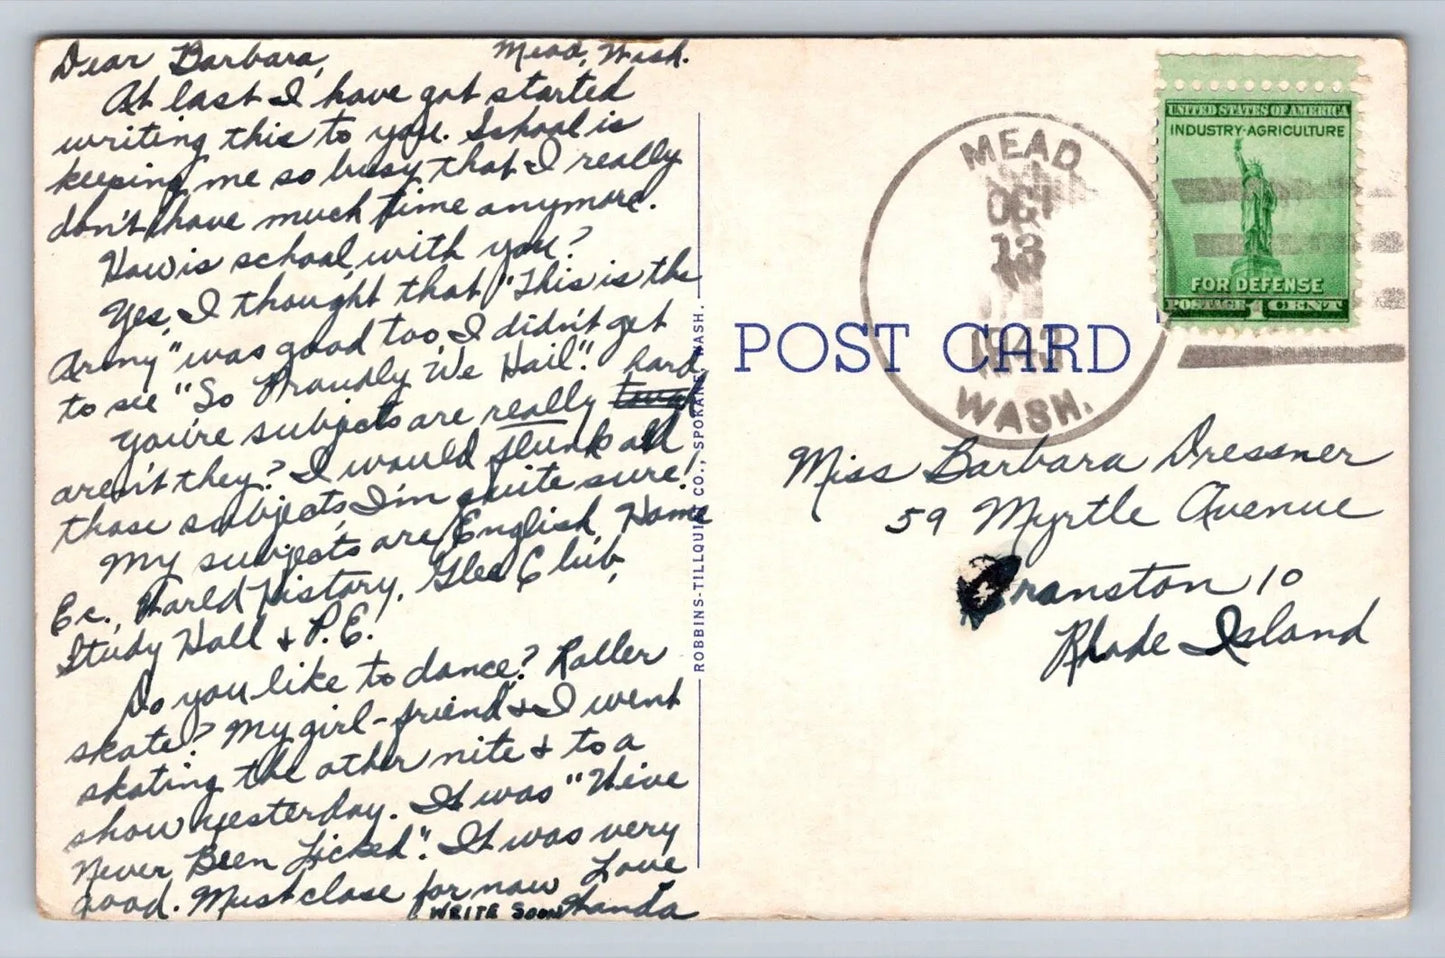 Dear Barbara,
Mead, Wash.
At last I have got started
writing this to you. School is
keeping me so busy that I really
don't have much time anymore.
How is school with you?
Yes, I thought that "This is the
Army" was good too, I didn't get
to see "So Proudly We Hail".
hard,
You're subjects are really tough
aren't they? I would flunk all
those subjects, I'm quite sure!
My subjects are English, Home
Ec., World History, Glee Club,
Study Hall & P.E.
Do you like to dance? Roller
skate? My girl-friend & I went
skating the other nite & to a
show yesterday. It was "We've
Never Been Licked". It was very
good. Must close for now Love
WRITE SOON Wanda
ROBBINS-TILLQUIST CO., SPOKANE, WASH.
POST CARD
MEAD
OCT
13
1943
WASH.
UNITED STATES OF AMERICA
INDUSTRY·AGRICULTURE
FOR DEFENSE
POSTAGE 1 CENT
Miss Barbara Dressner
59 Myrtle Avenue
Cranston 10
Rhode Island